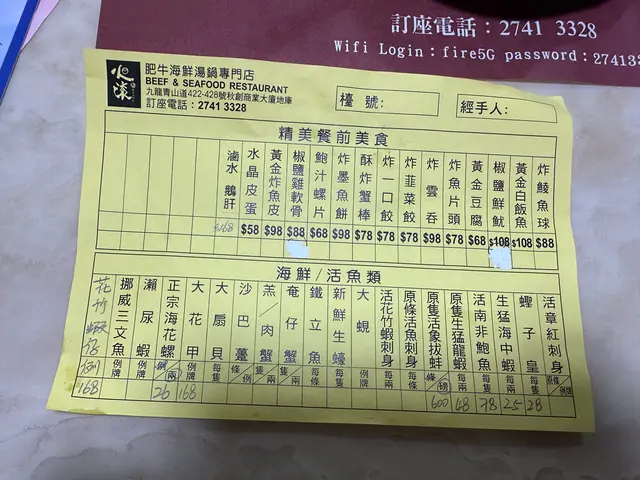 訂座電話：2741 3328
Wifi Login：fire5G password：27413
肥牛海鮮湯鍋專門店
BEEF & SEAFOOD RESTAURANT
九龍青山道422-428號秋創商業大廈地庫
訂座電話：2741 3328
檯號：
經手人：
精美餐前美食
炸鯪魚球 $88
黃金白飯魚 $108
椒鹽鮮魷 $108
黃金豆腐 $68
炸魚片頭 $78
炸雲吞 $98
炸韮菜餃 $78
炸一口餃 $78
酥炸蟹棒 $78
炸墨魚餅 $98
鮑汁螺片 $68
椒鹽雞軟骨 $88
黃金炸魚皮 $98
水晶皮蛋 $58
滷水鵝肝 $168
海鮮/活魚類
活章紅刺身 原條/例牌
蟶子皇 每隻 28
生猛海中蝦 每兩 25
活南非鮑魚 每隻 78
原隻生猛龍蝦 每兩 48
原隻活象拔蚌 條/磅 600
原條活魚刺身 每條
活花竹蝦刺身 每兩
大蜆 例牌
新鮮生蠔 每隻
鐵立魚 每條
奄仔蟹 隻/兩
羔/肉蟹 隻/兩
沙巴躉 條/例
大扇貝 每隻
大花甲 例牌 168
正宗海花螺 例/兩 26
瀨尿蝦 例牌
挪威三文魚 例牌
花竹蝦 168